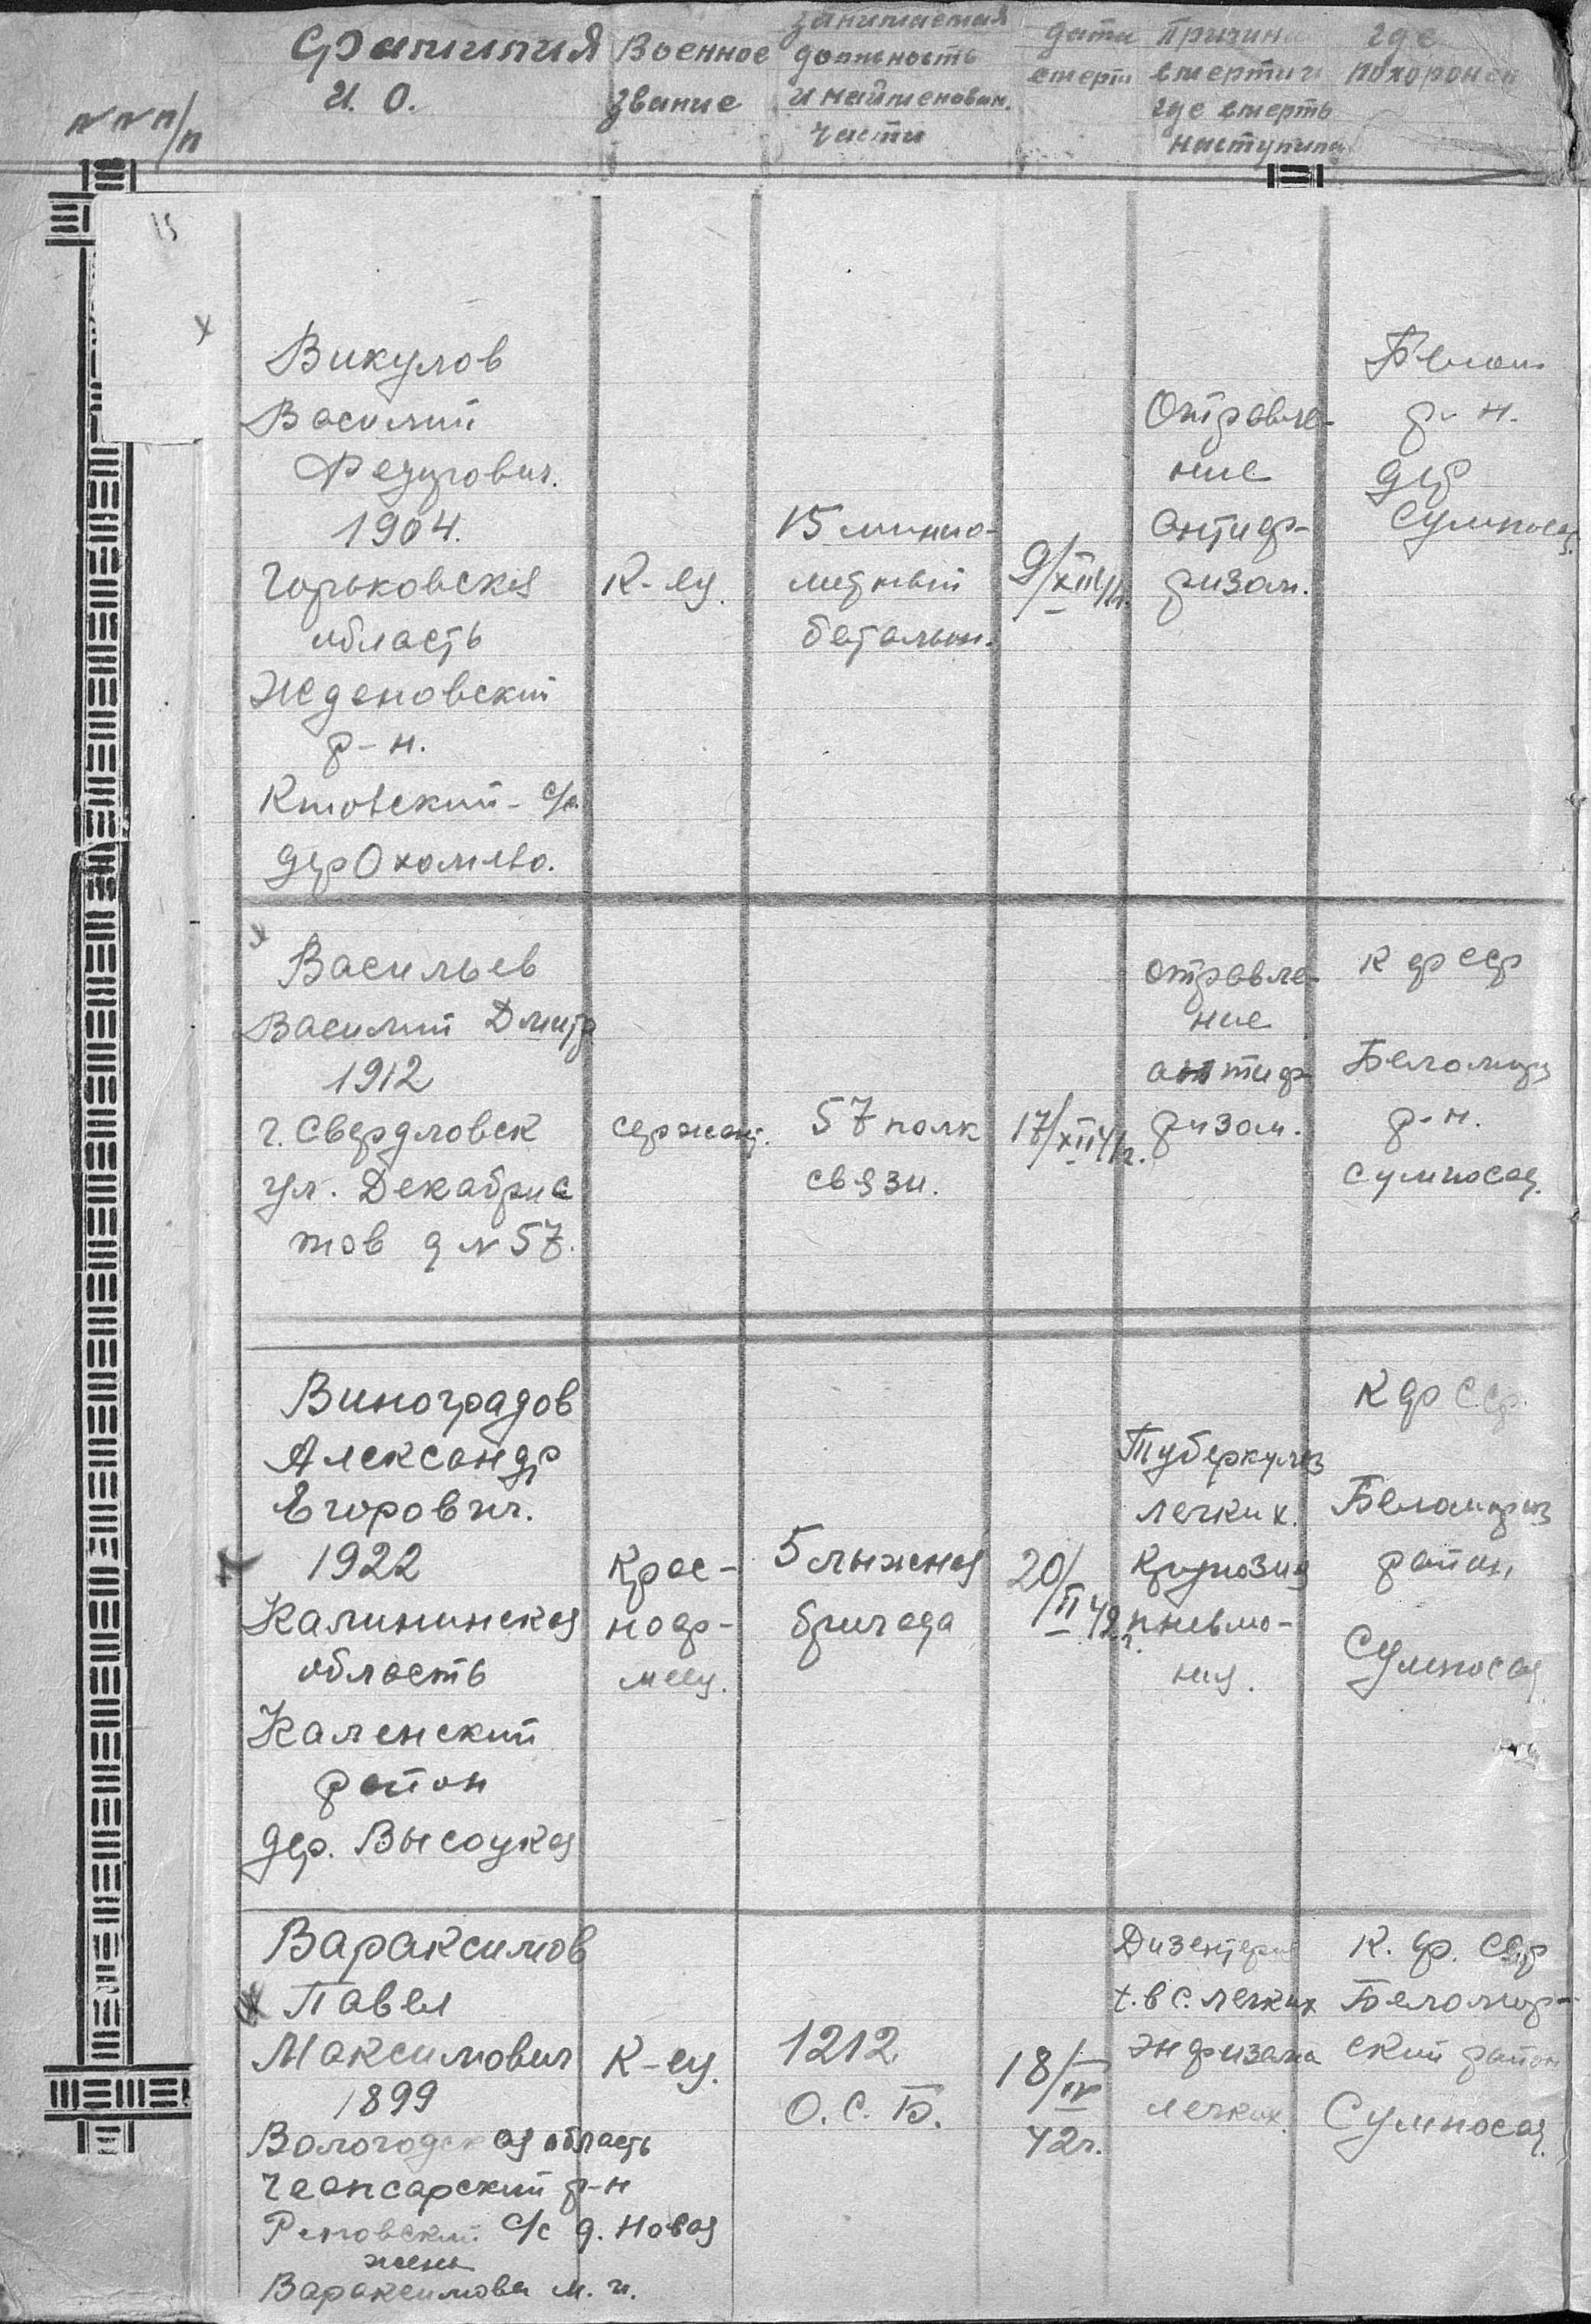 №№ п/п
Фамилия
И. О.
Военное
звание
занимаемая
должность
и наименован.
части
дата
смерти
Причина
смерти и
где смерть
наступила
где
похоронен
15
Викулов
Василий
Федорович.
1904.
Горьковская
область
р-н.
с/с
дер
К-ец.
15 мино-
метный
батальон.
9/XII 41г.
Отравле-
ние
антиф-
ризом.
Белом.
р-н.
дер
Сумпосад.
Васильев
Василий Дмитр
1912
г. Свердловск
ул. Декабрис
тов д № 57.
сержант.
57 полк
связи.
17/XII 41г.
отравле-
ние
антиф-
ризом.
К ф сср
Беломор
р-н.
Сумпосад.
Виноградов
Александр
Егорович.
1922
Калининская
область
район
дер. Высоцкая
Крас-
ноар-
меец.
5 лыжная
бригада
20/II 42г.
Туберкулез
легких.
Крупозная
пневмо-
ния.
К ф ССР.
Беломорск
район
Сумпосад
Вараксимов
Павел
Максимович
1899
Вологодская область
Чебсарский р-н
с/с д. Новая
жена
Вараксимова М. И.
К-ец.
1212.
О. С. Б.
18/IV
42г.
Дизентерия
t.в с. легких
энфизама
легких.
К. ф. ССР
Беломор-
ский район
Сумпосад.